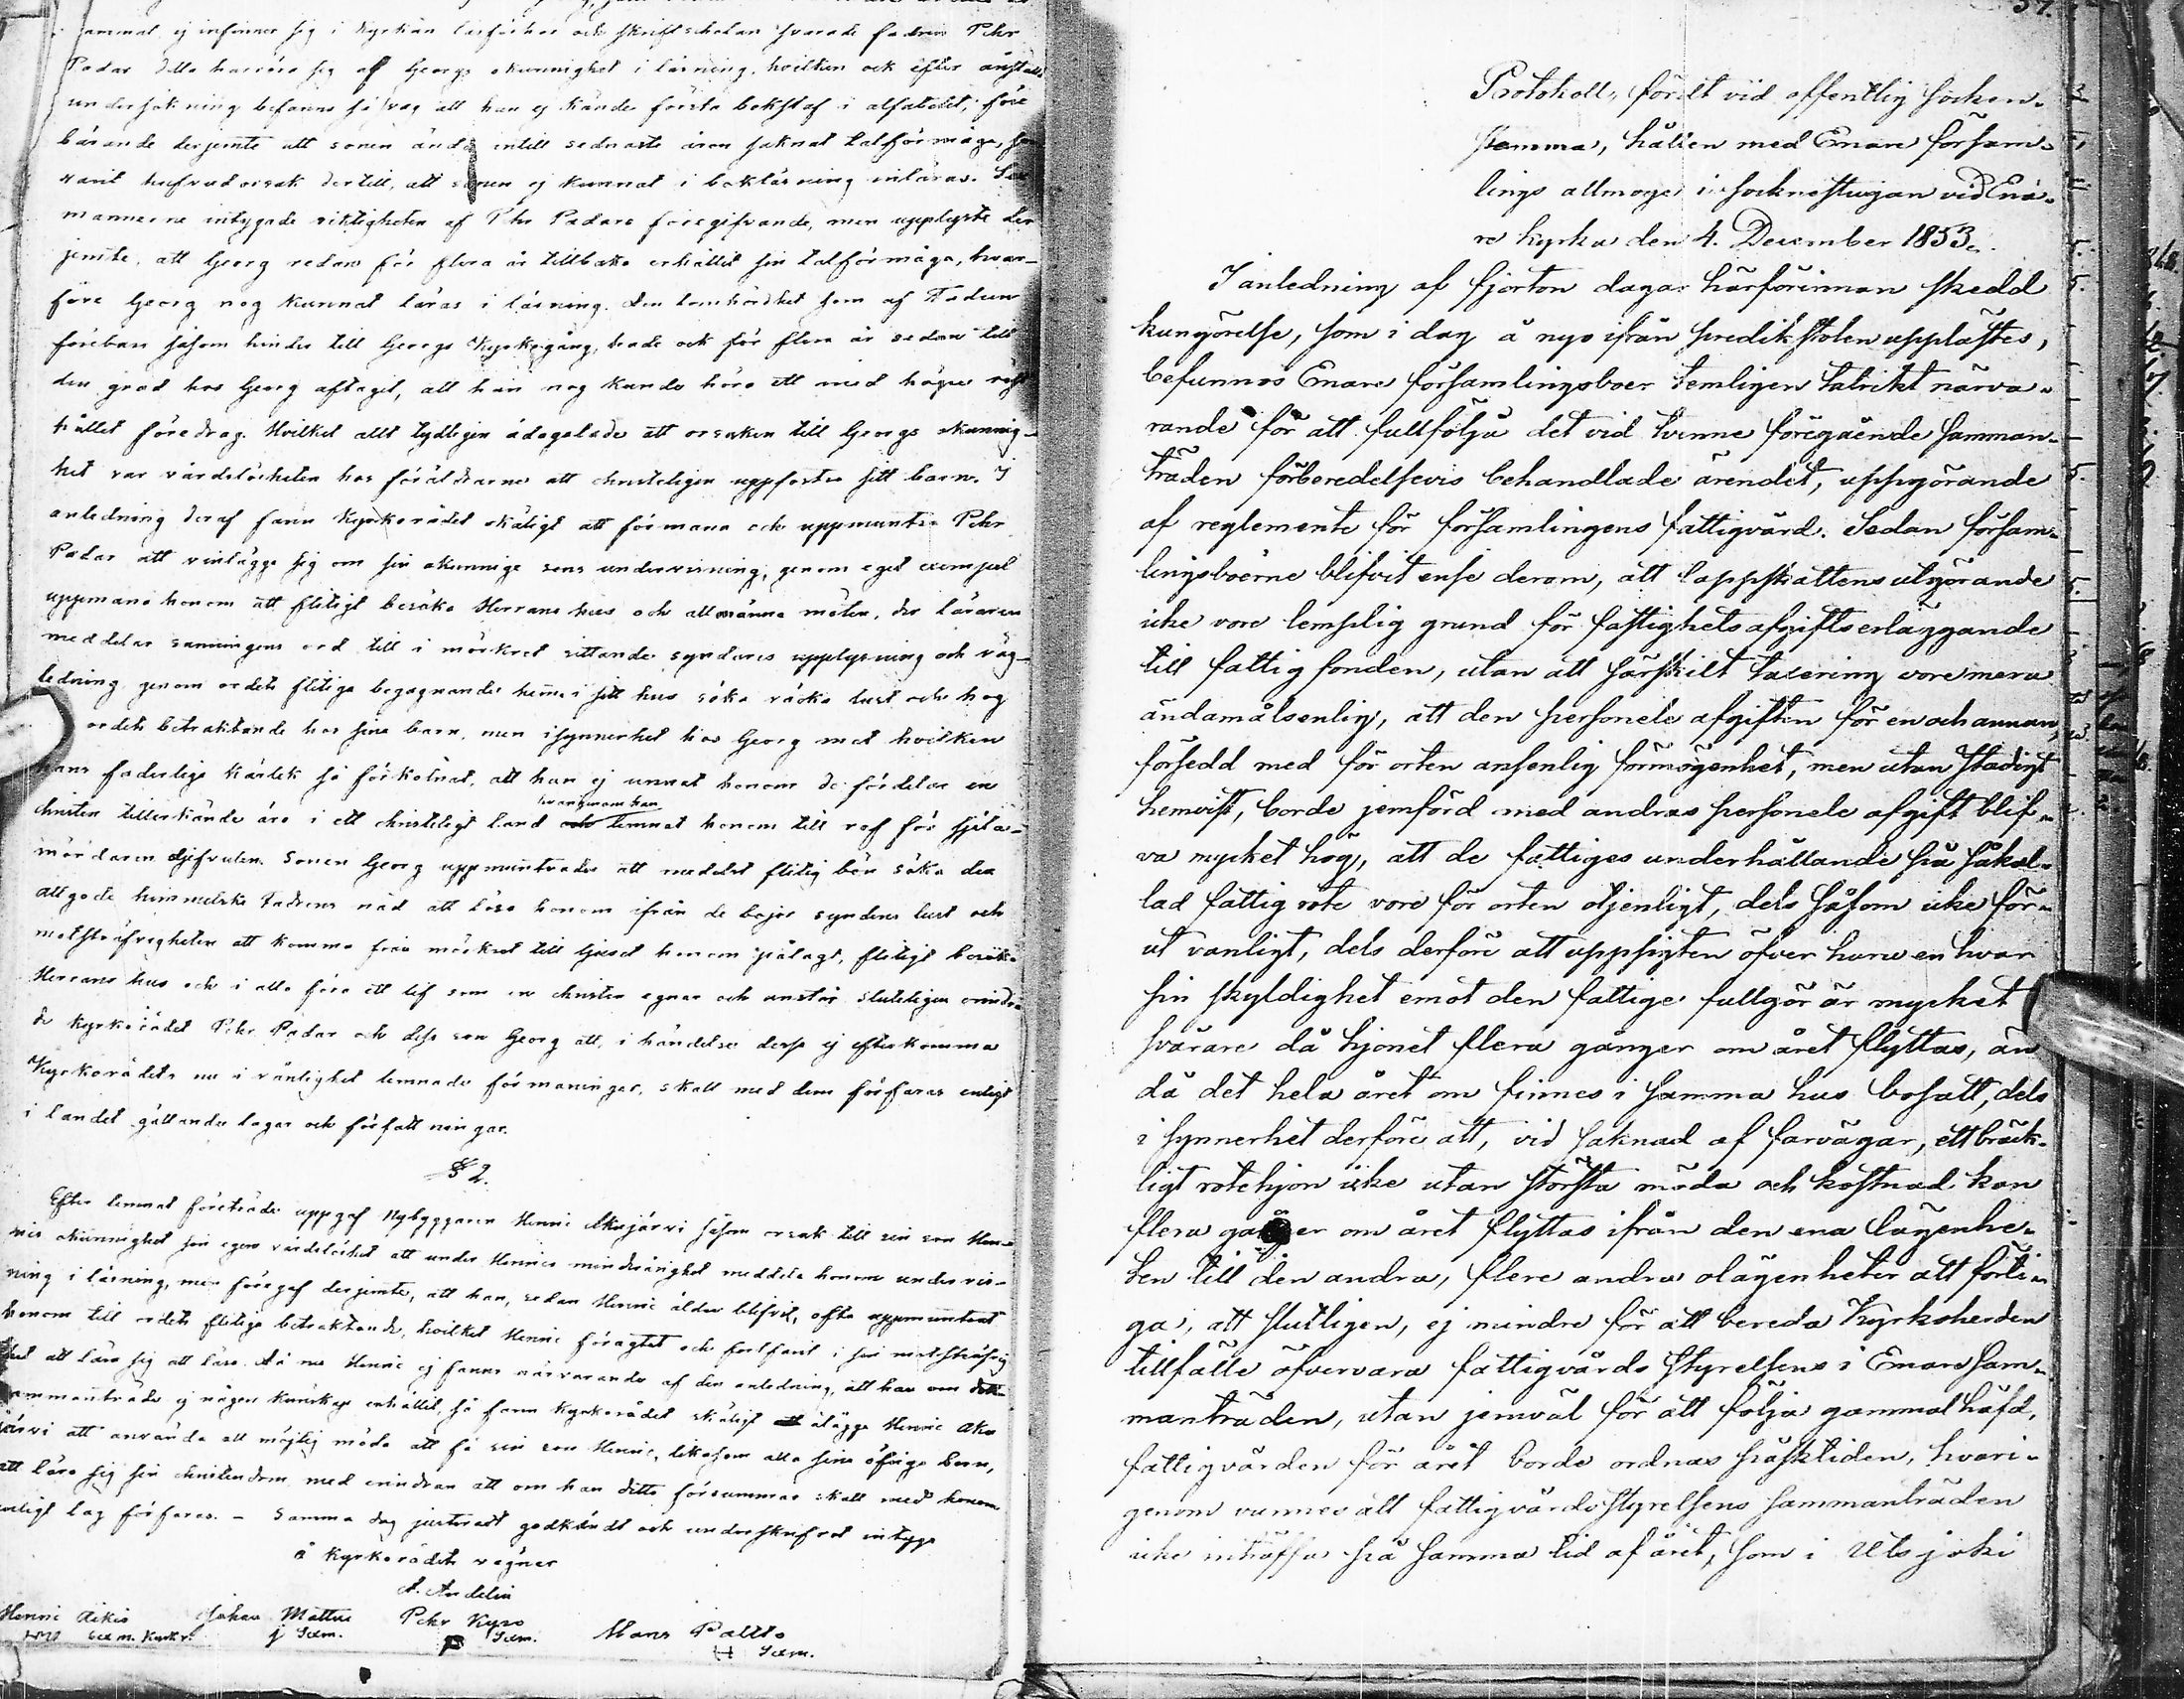 ej infinner sig i kyrkan läsförhör och skriftskolan svarade fadren Pehr
Padar detta härröra sig af Georgs okunnighet i läsning, hvilken ock efter anstäld
undersökning befanns så svag att han ej kände första bokstaf i alfabetet, före
bärande derjemte att sonen ändå intill sednaste åren saknat talförmåga, som
varit hufvudorsak dertill, att sonen ej kunnat i bokläsning inläras. Sex
männerne intygade riktigheten af Pehr Padars föregifvande, men upplyste der
jemte, att Georg redan för flera år tillbaka erhållit sin talförmåga, hvar-
före Georg nog kunnat läras i läsning. Den lomhördhet som af Fadren
förebars såsom hinder till Georgs Kyrkogång, hade ock för flera år sedan till
den grad hos Georg aftagit, att han nog kunde höra ett med högre röst
hållet föredrag. Hvilket allt tydligen ådagalade att orsaken till Georgs okunnig-
het var vårdslösheten hos föräldrarne att christeligen uppfostra sitt barn. I
anledning deraf fann Kyrkorådet skäligt att förmana och uppmuntra Pehr
Padar att vinlägga sig om sin okunnige sons undervisning, genom eget exempel
uppmana honom att flitigt besöka Herrans hus och allmänna möten, der läraren
meddelar sanningens ord till i mörkret sittande syndares upplysning och väg-
ledning genom ordets flitiga begagnande hemma i sitt hus söka väcka lust och hog
ordets betraktande hos sina barn, men isynnerhet hos Georg mot hvilken
hans faderliga kärlek så förkolnat, att han ej unnat honom de fördelar en
christen tillerkände äro i ett christeligt land och hvarigenom han lemnat honom till rof för själa-
mördaren djefvulen. Sonen Georg uppmuntrades att medelst flitig bön söka den
allgode himmelske Fadrens nåd att lösa honom ifrån de bojor syndens lust och
motsträfvigheten att komma från mörkret till ljuset honom pålagt, flitigt besöka
Herrans hus och i allo föra ett lif som en christen egnar och anstår. Sluteligen erindra-
de kyrkorådet Pehr Padar och dess son Georg att, i händelse desse ej efterkomma
Kyrkorådets nu i vänlighet lemnade förmaningar, skall med dem förfaras enligt
i landet gällande lagar och författningar.
§ 2.
Efter lemnat företräde uppgaf Nybyggaren Henric Akujärvi såsom orsak till sin son Hen-
rics okunnighet sin egen vårdslöshet att under Henrics minderårighet meddela honom undervis-
ning i läsning, men föregaf derjemte, att han, sedan Henric äldre blifvit, ofta uppmuntrat
honom till ordets flitiga betraktande, hvilket Henric föragtat och fortfarit i sin motsträfvig
het att lära sig att läsa. Då nu Henric ej fanns närvarande af den anledning, att han om detta
sammanträde ej någon kunskap erhållit så fann kyrkorådet skäligt ålägga Henric Aku
järvi att använda all möjlig möda att få sin son Henric, likasom alla sina öfriga barn,
att lära sig sin christendom med erindran att om han detta försummar skall med honom
enligt lag förfaras. - Samma dag justeradt godkändt och underskrifvet intyga
å Kyrkorådets vägnar
A. Andelin
Henric Aikio Johan Mattus Pehr Kyrö Hans Paltto
Sexm. Kyrkv. j Sexm. P Sexm. H Sexm.
57.
Protokoll, fördt vid offentlig socken-
stämma, hållen med Enare försam-
lings allmoge i sockenstugan vid Ena-
re kyrka den 4. December 1853.
I anledning af fjorton dagar härförinnan skedd
kungörelse, som i dag å nyo ifrån predikstolen upplästes,
befunnos Enare församlingsboer temligen talrikt närva-
rande för att fullfölja det vid tvenne föregående samman-
träden förberedelsevis behandlade ärendet, uppgörande
af reglemente för församlingens fattigvård. Sedan försam-
lingsboerne blifvit ense derom, att lappskattens utgörande
icke vore lemplig grund för fattighets afgifts erläggande
till fattig fonden, utan att särskilt taxering vore mera
ändamålsenlig, att den personele afgiften för en och annan,
försedd med för orten ansenlig förmögenhet, men utan stadigt
hemvist, borde jemförd med andras personele afgift blif-
va mycket hög, att de fattiges underhållande på såkal-
lad fattig rote vore för orten otjenligt, dels såsom icke för-
ut vanligt, dels derföre att uppsigten öfver huru en hvar
sin skyldighet emot den fattige fullgör är mycket
svårare då hjonet flera gånger om året flyttas, än
då det hela året om finnes i samma hus bosatt, dels
i synnerhet derföre att, vid saknad af farvägar, ett bräck-
ligt rotehjon icke utan största möda och kostnad kan
flera gånger om året flyttas ifrån den ena lägenhe-
ten till den andra, flere andra olägenheter att förti-
ga, att slutligen, ej mindre för att bereda Kyrkoherden
tillfälle öfvervara fattigvårds styrelsens i Enare sam-
manträden, utan jemväl för att följa gammal häfd,
fattigvården för året borde ordnas påsktiden, hvari-
genom vunnes att fattigvårds styrelsens sammanträden
icke inträffa på samma tid af året, som i Utsjoki